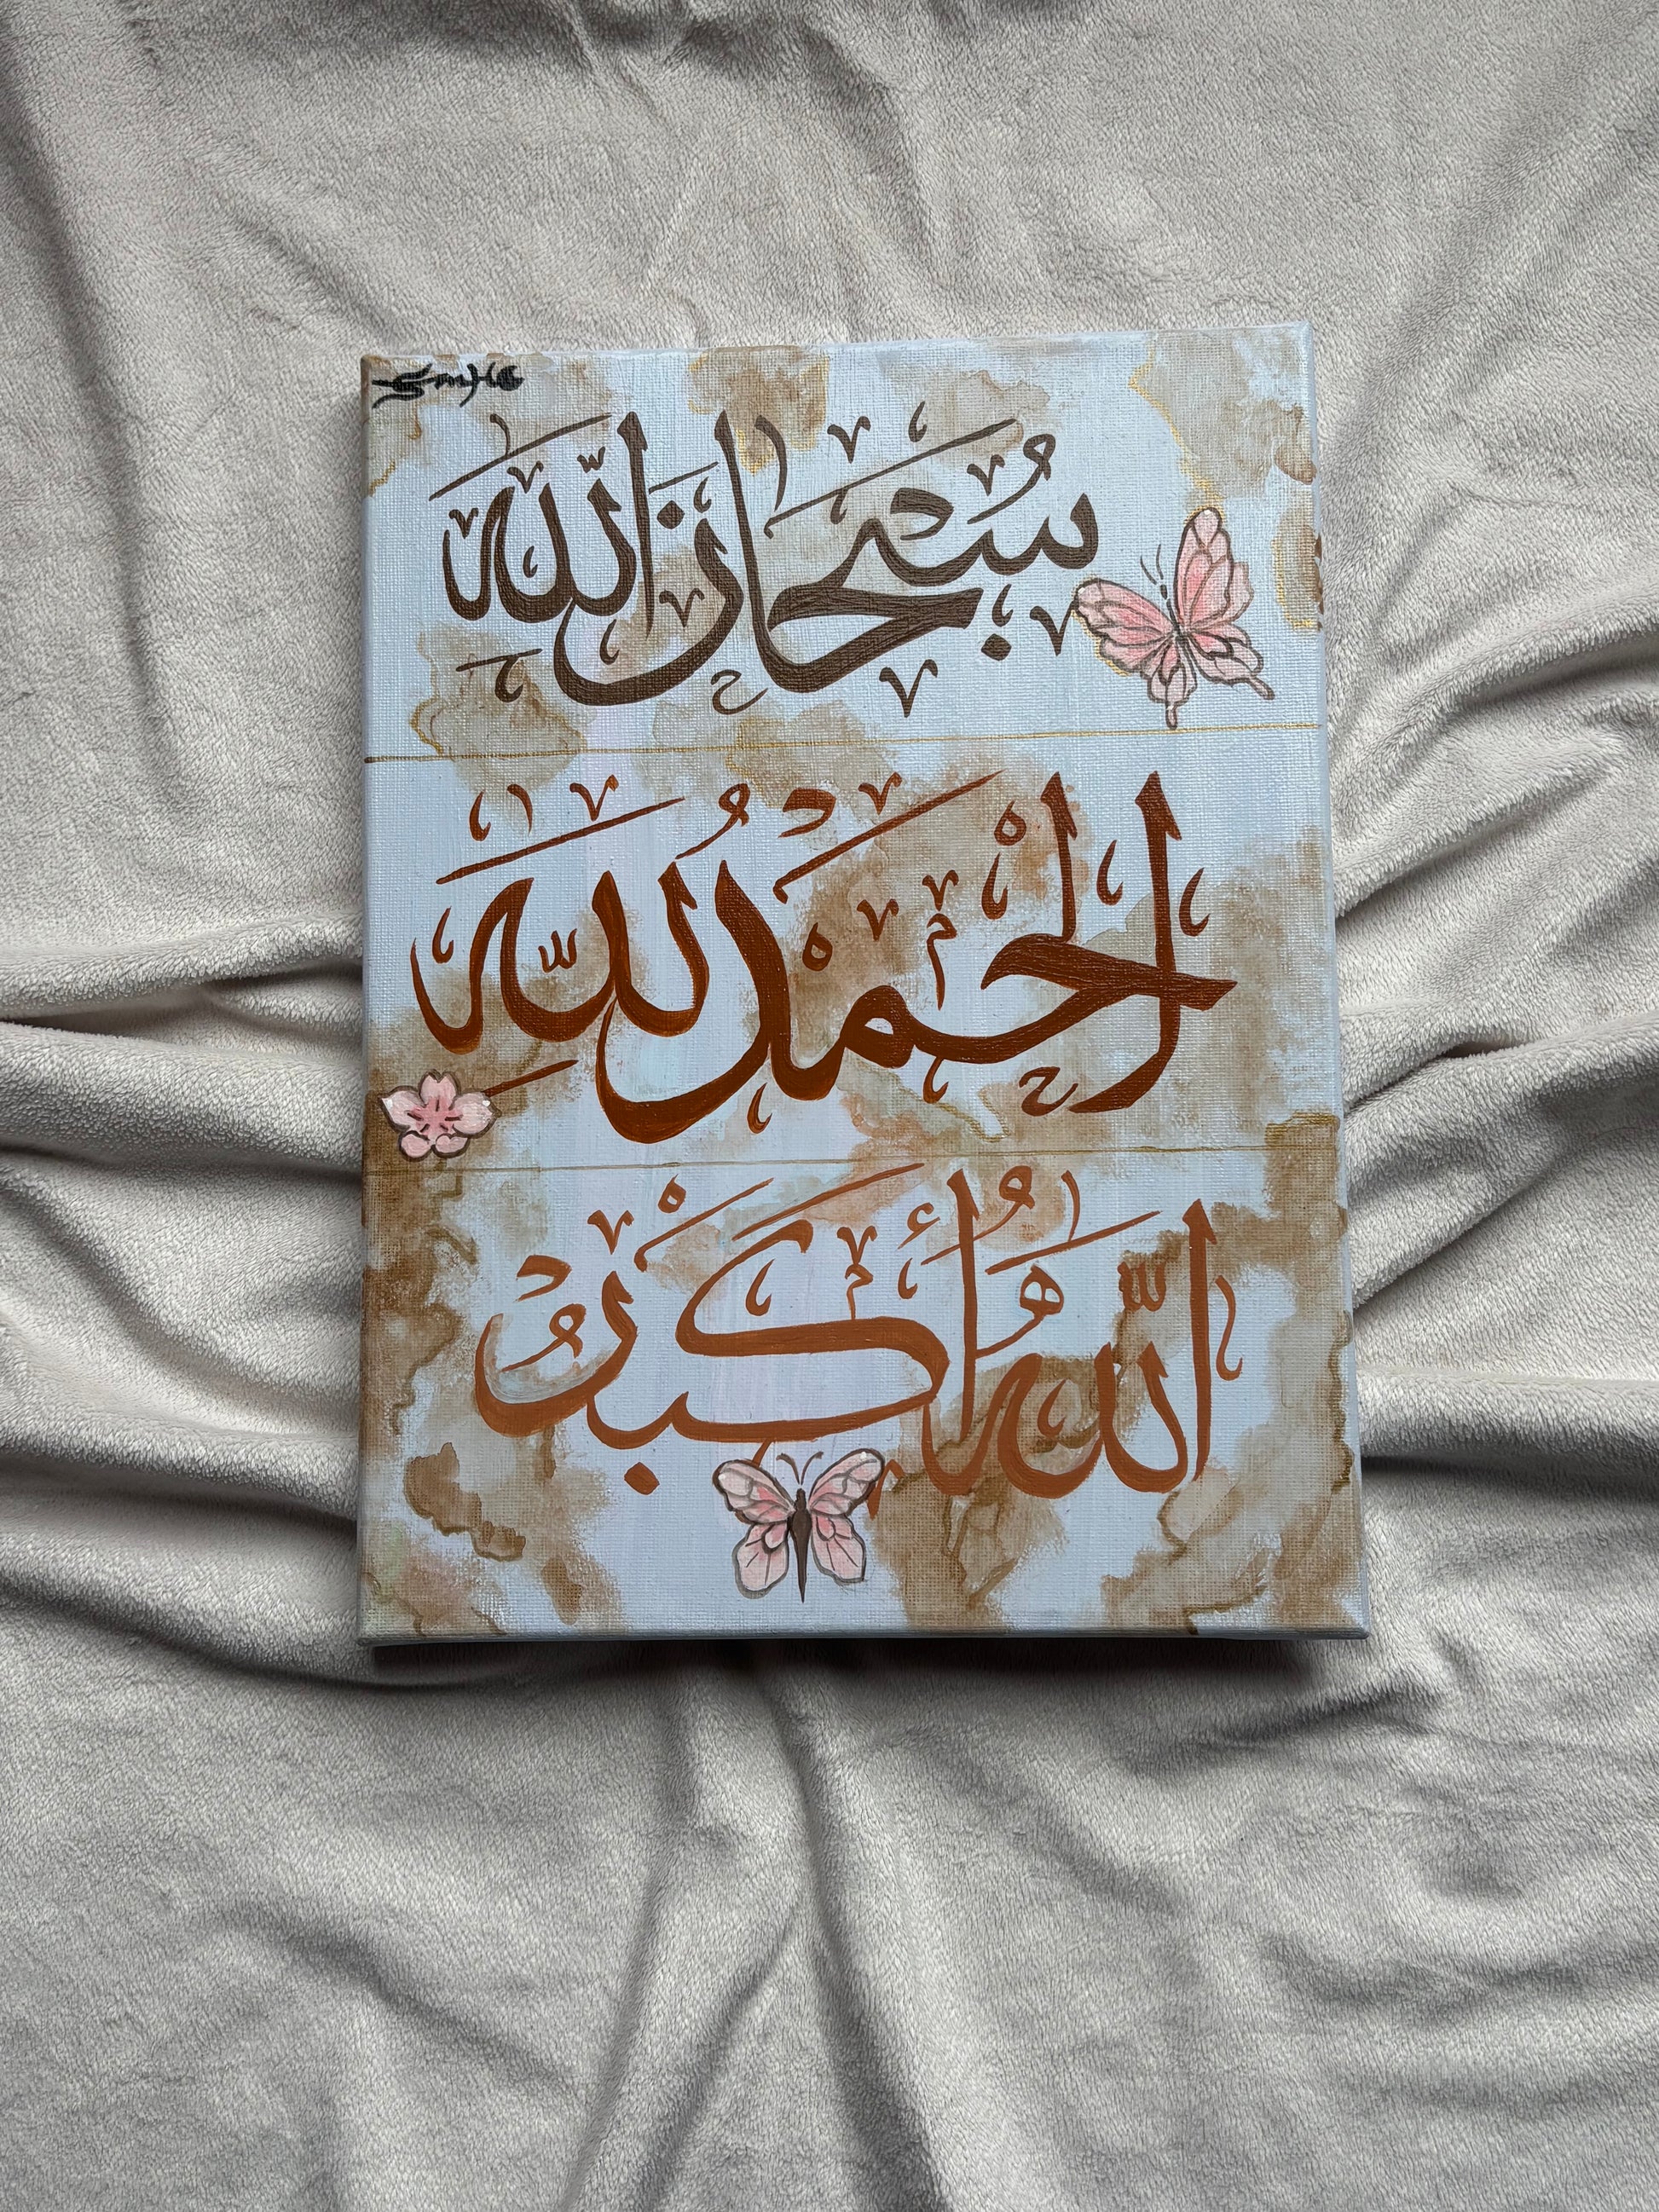 سُبْحَانَ اللّٰهِ
اَلْحَمْدُ لِلّٰهِ
اَللّٰهُ أَكْبَرُ